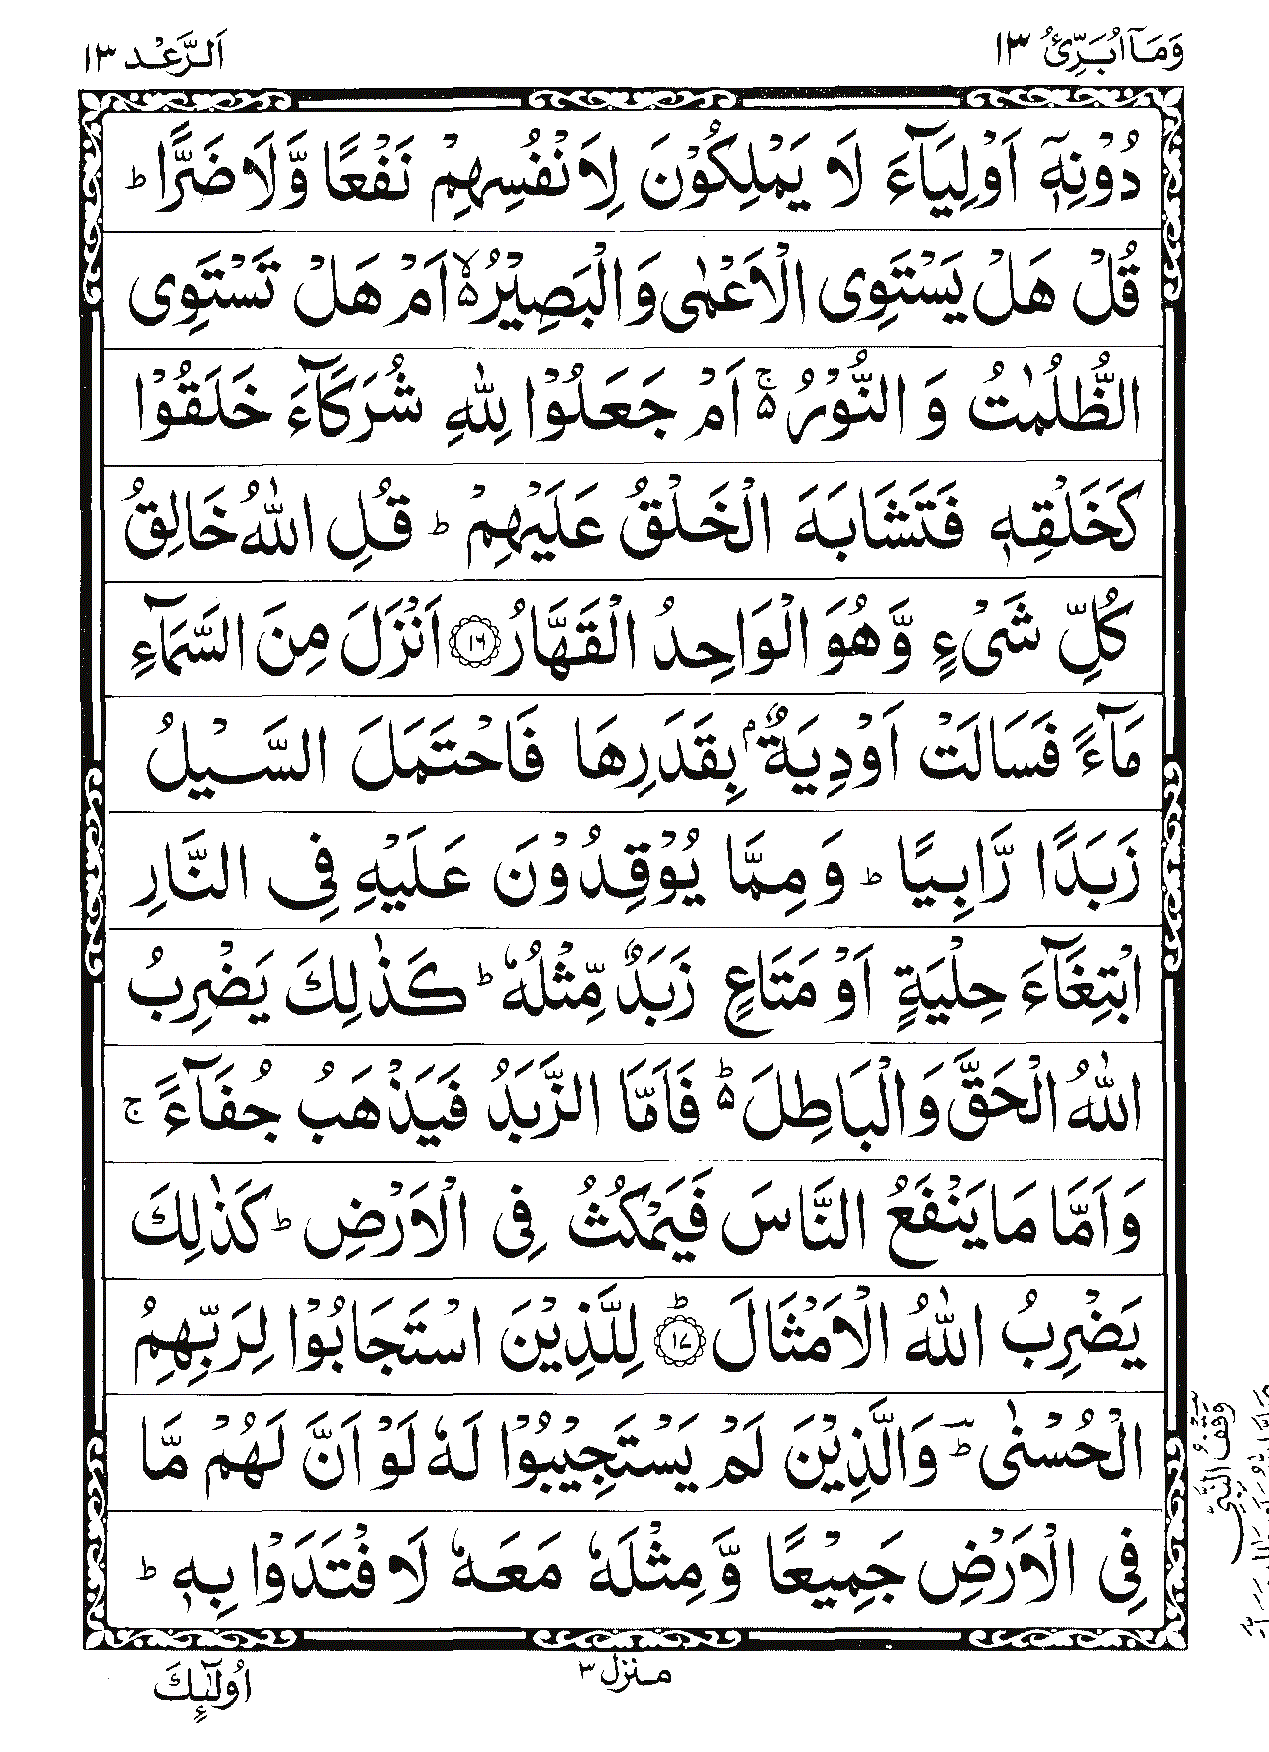 وَمَآ اُبَرِّئُ ١٣
اَلرَّعْد ١٣
دُوْنِهٖٓ اَوْلِيَآءَ لَا يَمْلِكُوْنَ لِاَنْفُسِهِمْ نَفْعًا وَّلَا ضَرًّا ؕ
قُلْ هَلْ يَسْتَوِى الْاَعْمٰى وَالْبَصِيْرُ ۙ۬ اَمْ هَلْ تَسْتَوِى
الظُّلُمٰتُ وَ النُّوْرُ ۚ۬ اَمْ جَعَلُوْا لِلّٰهِ شُرَكَآءَ خَلَقُوْا
كَخَلْقِهٖ فَتَشَابَهَ الْخَلْقُ عَلَيْهِمْ ؕ قُلِ اللّٰهُ خَالِقُ
كُلِّ شَىْءٍ وَّهُوَ الْوَاحِدُ الْقَهَّارُ ۝١٦ اَنْزَلَ مِنَ السَّمَآءِ
مَآءً فَسَالَتْ اَوْدِيَةٌۢ بِقَدَرِهَا فَاحْتَمَلَ السَّيْلُ
زَبَدًا رَّابِيًا ؕ وَ مِمَّا يُوْقِدُوْنَ عَلَيْهِ فِى النَّارِ
ابْتِغَآءَ حِلْيَةٍ اَوْ مَتَاعٍ زَبَدٌ مِّثْلُهٗ ؕ كَذٰلِكَ يَضْرِبُ
اللّٰهُ الْحَقَّ وَالْبَاطِلَ ؕ۬ فَاَمَّا الزَّبَدُ فَيَذْهَبُ جُفَآءً ۚ
وَاَمَّا مَا يَنْفَعُ النَّاسَ فَيَمْكُثُ فِى الْاَرْضِ ؕ كَذٰلِكَ
يَضْرِبُ اللّٰهُ الْاَمْثَالَ ؕ ۝١٧ لِلَّذِيْنَ اسْتَجَابُوْا لِرَبِّهِمُ
الْحُسْنٰى ؕؔ وَالَّذِيْنَ لَمْ يَسْتَجِيْبُوْا لَهٗ لَوْ اَنَّ لَهُمْ مَّا
فِى الْاَرْضِ جَمِيْعًا وَّ مِثْلَهٗ مَعَهٗ لَافْتَدَوْا بِهٖ ؕ
وقف النبي
منزل ٣
اُولٰٓئِكَ